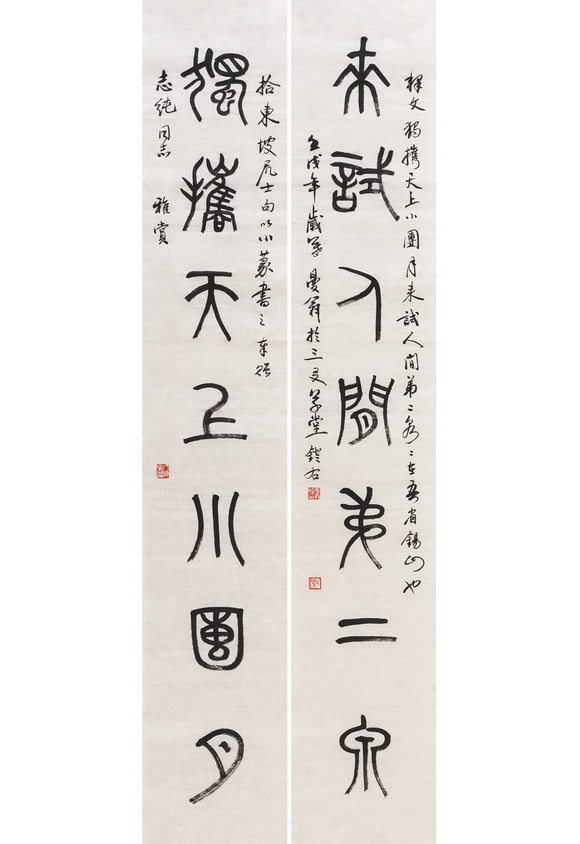 釋文獨攜天上小團月来試人間第二泉〻在吾省錫山也
来試人間弟二泉
壬戌年歲暮曼翁於三友草堂鐙右
拾東坡居士句以小篆書之奉貽
獨攜天上小團月
志純同志 雅賞